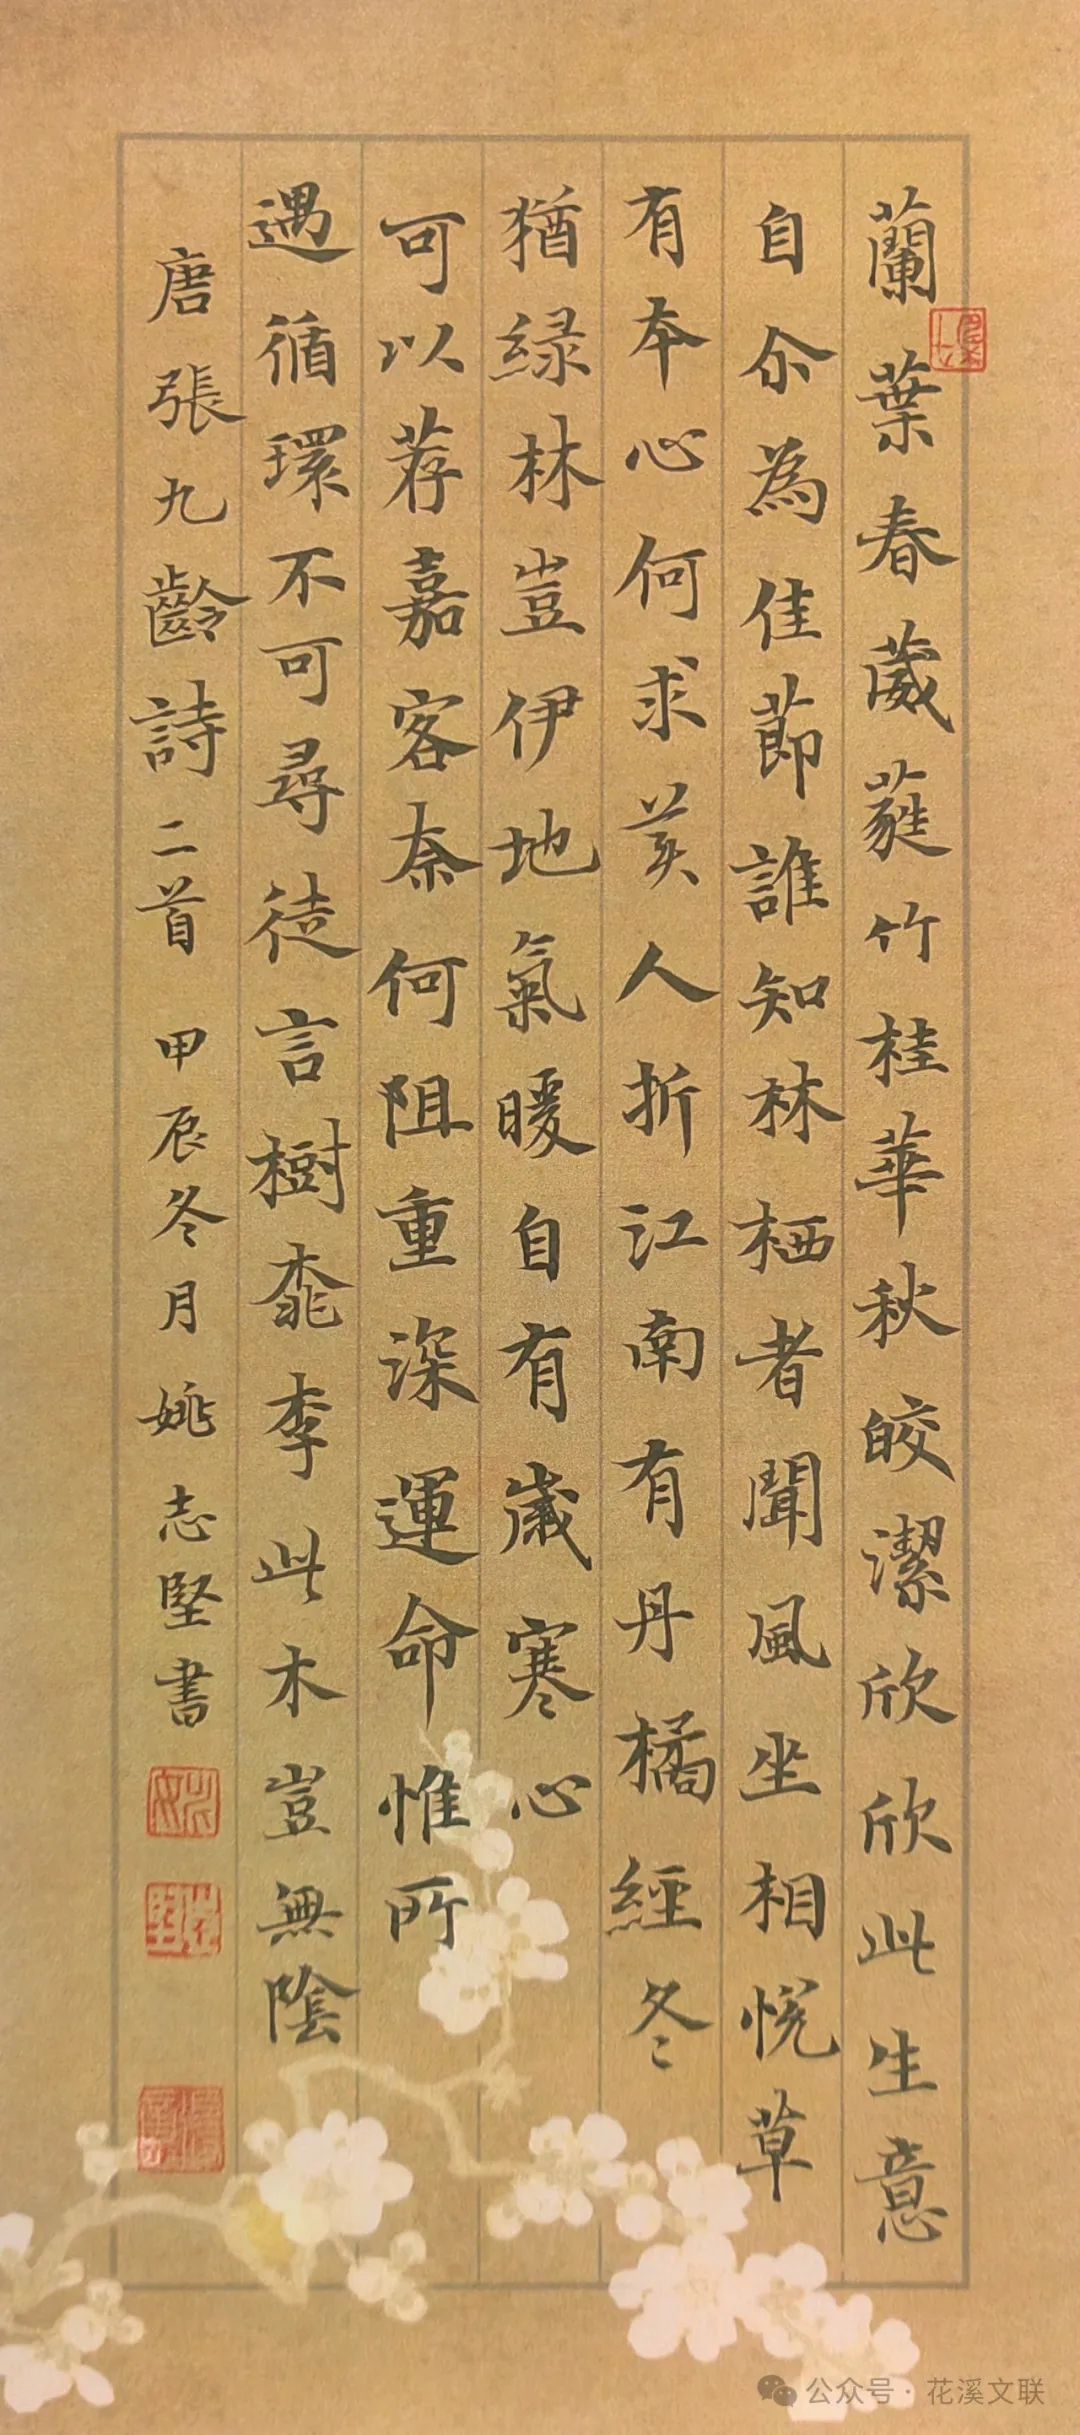 蘭葉春葳蕤竹桂華秋皎潔欣欣此生意
自尒為佳節誰知林栖者聞風坐相悅草
有本心何求美人折江南有丹橘經冬
猶緑林豈伊地氣暖自有歲寒心
可以荐嘉客奈何阻重深運命惟所
遇循環不可尋徒言樹桃李此木豈無陰
唐張九齡詩二首甲辰冬月姚志堅書
公众号·花溪文联